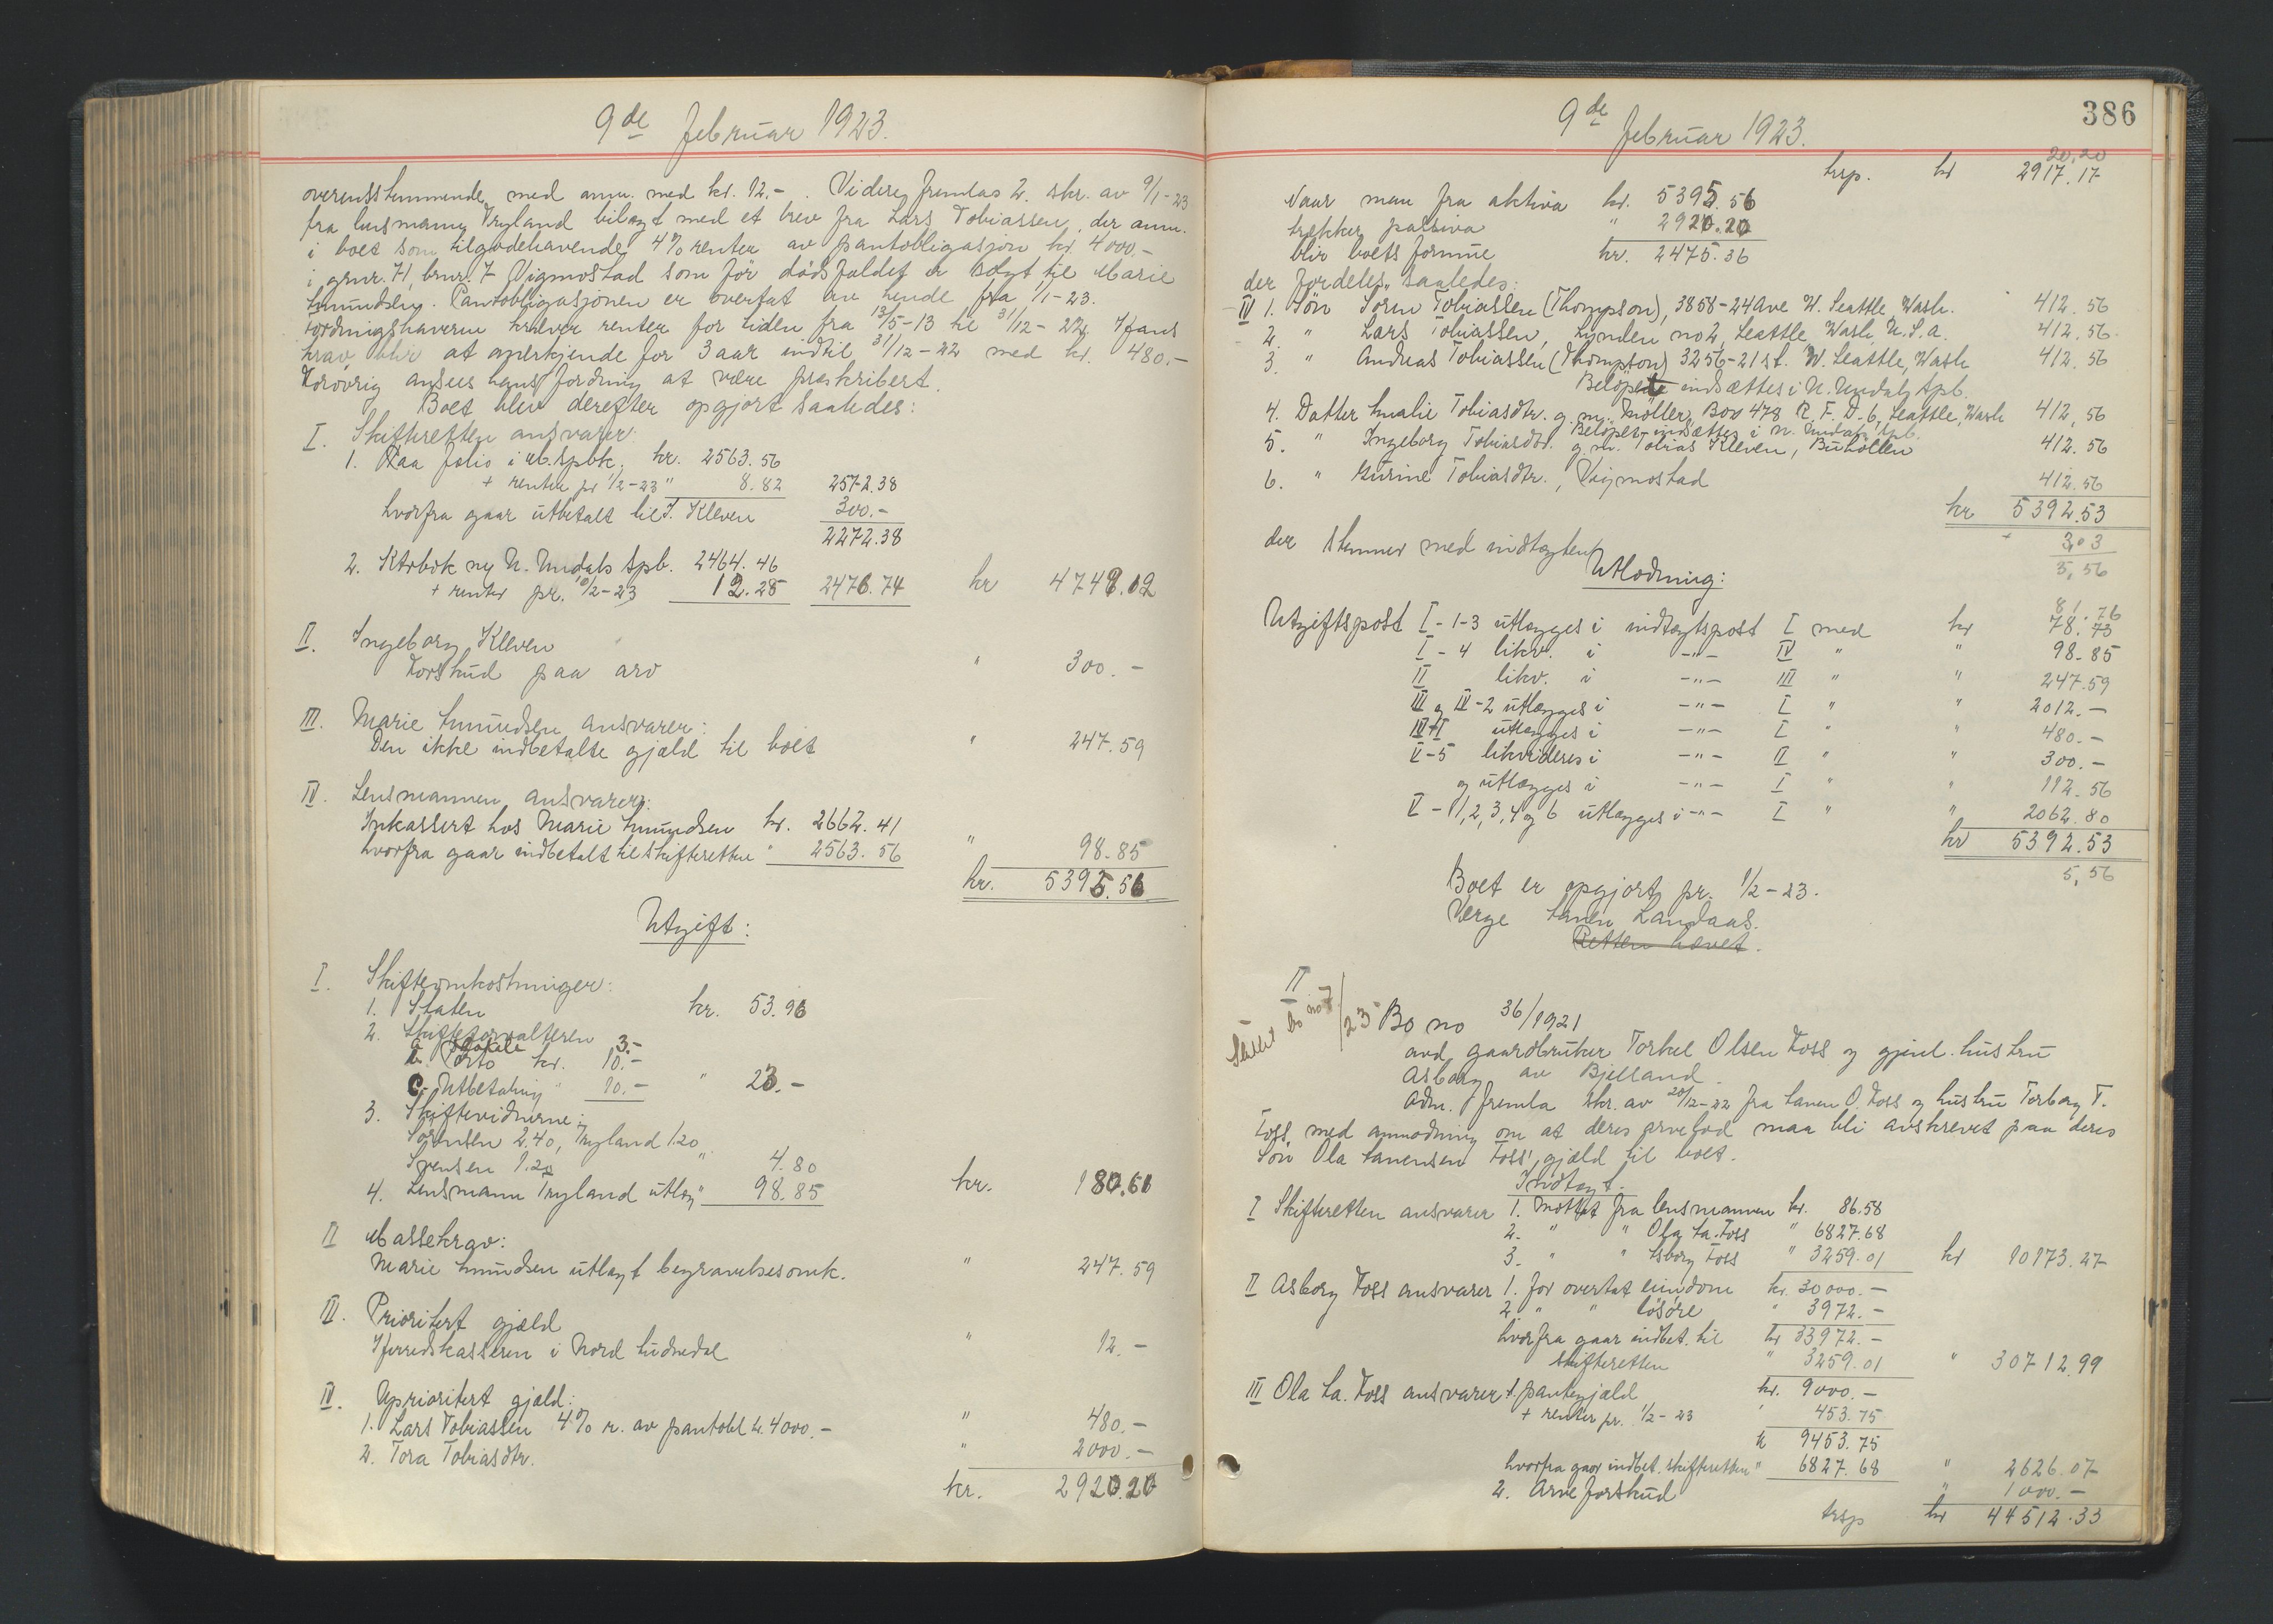 9de februar 1923.
overensstemmende med anm. med kr. 12,- . Videre fremlas 2. skr. av 9/1-23
fra lensmann Tryland bilagt med et brev fra Lars Tobiassen, der anm.
i boet som tilgodehavende 4% renter av pantobligasjon kr. 4000,-
i grnr. 71, brnr. 7 Vigmostad som før dødsfaldet er solgt til Marie
Amundsen. Pantobligasjonen er overtat av hende fra 1/1-23.
Fordringshaveren kræver renter for tiden fra 13/5-13 til 31/12-22. Hans
krav blir at anerkjende for 3 aar indtil 31/12-22 med kr. 480.-
Forøvrig ansees hans fordring at være præskribert.
Boet blev derefter opgjort saaledes:
I. Skifteretten ansvarer:
1. Paa folio i M. spbk. kr. 2563.56
+ renter pr 1/2-23 " 8.82 2572.38
hvorfra gaar utbetalt til T. Kleven 300.-
2272.38
2. Ktrbok ny N. Undals spb. 2464.46
+ renter pr. 10/2-23 12.28 2476.74 kr 4748.12
II. Ingeborg Kleven
Forskud paa arv " 300.-
III. Marie Amundsen ansvarer:
Den ikke indbetalte gjæld til boet " 247.59
IV. Lensmannen ansvarer:
Inkassert hos Marie Amundsen kr. 2662.41
hvorfra gaar indbetalt til skifteretten " 2563.56 " 98.85
kr. 5395.56
Utgift:
I. Skifteomkostninger:
1. Staten kr. 53.96
2. Skifteforvalteren
a. Lokale 3.-
b. Porto kr. 10.-
c. Utbetaling " 10.- " 23.-
3. Skiftevidnerne:
Sørensen 2.40, Tryland 1.20
Svensen 1.20 " 4.80
4. Lensmann Tryland utlæg " 98.85 kr. 180.61
II Massekrav:
Marie Amundsen utlagt begravelsesomk. " 247.59
III. Prioritert gjæld
Herredskasseren i Nord Audnedal " 12.-
IV. Uprioritert gjæld:
1. Lars Tobiassen 4% r. av pantobl kr. 4000.- " 480.-
2. Tora Tobiasdtr. " 2000.-
kr. 2920.20
9de februar 1923.
386
20,20
trsp. kr 2917.17
Naar man fra aktiva kr. 5395.56
trækker passiva " 2920.20
blir boets formue kr. 2475.36
der fordeles saaledes:
IV 1. Søn Sørn Tobiassen (Thompson), 3858-24 Ave W. Seattle, Wash. 412.56
2. " Lars Tobiassen, Lynden no 2, Seattle Wash U.S.A. 412.56
3. " Andreas Tobiassen (Thompson) 3256-21 st. W. Seattle, Wash 412.56
Beløpene indsættes i N. Undals spb.
4. Datter Amalie Tobiasdtr. g.m. Møller, Box 478 R. F. D. 6, Seattle, Wash 412,56
Beløpet indsættes i N. Undals spb.
5. " Ingeborg Tobiasdtr. g.m. Tobias Kleven, Buhøllen 412.56
6. " Gurine Tobiasdtr., Vigmostad 412.56
kr 5392.53
der stemmer med indtægten + 3,03
5,56
Utlodning:
81.76
Utgiftspost I-1-3 utlægges i indtægtspost I med kr 78.73
I-4 likv. i -"- IV " " 98.85
II likv. i -"- III " " 247.59
III og IV-2 utlægges i -"- I " " 2012.-
IV-1 utlægges i -"- I " " 480.-
V-5 likvideres i -"- II " " 300.-
og utlægges i -"- I " " 112.56
V-1,2,3,4 og 6 utlægges i -"- I " " 2062.80
kr 5392.53
5,56
Boet er opgjort pr. 1/2-23.
Verge Tanen Landaas.
Retten hævet.
II
Sluttet bo no 7/23 Bo no 36/1921
avd. gaardbruker Torkel Olsen Foss og gjenl. hustru
Asborg av Bjelland.
Adm. fremla skr. av 20/12-22 fra Tanen O. Foss og hustru Torborg T.
Foss med anmodning om at deres arvelod maa bli avskrevet paa deres
søn Ola Tanensen Foss' gjæld til boet.
Indtægt.
I Skifteretten ansvarer 1. Mottat fra lensmannen kr. 86.58
2. " " Ola Ta. Foss " 6827.68
3. " " Asborg Foss " 3259.01 kr 10173.27
II Asborg Foss ansvarer 1. for overtat eiendom kr. 30000.-
2. " " løsøre " 3972.-
hvorfra gaar indbet. til kr 33972.-
skifteretten " 3259.01 " 30712.99
III Ola Ta. Foss ansvarer 1. pantegjæld kr. 9000.-
+ renter pr. 1/2-23 " 453.75
kr 9453.75
hvorfra gaar indbet. skifteretten " 6827.68 " 2626.07
2. Arveforskud " 1000.-
trsp kr 44512.33